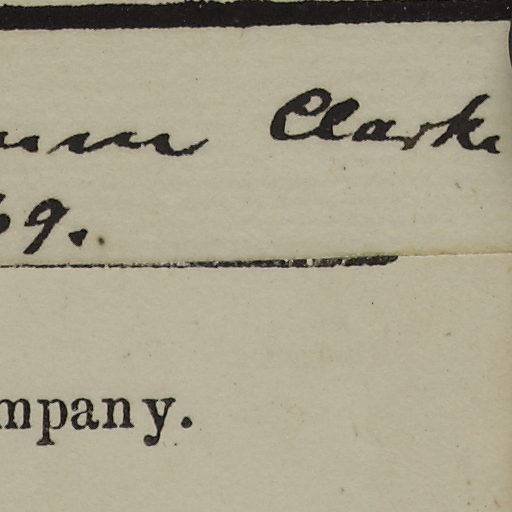 Clark
69.
mpany.